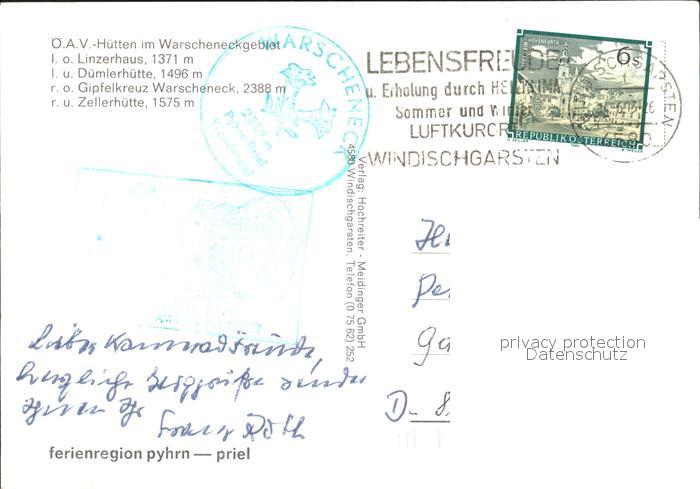 Ö.A.V.-Hütten im Warscheneckgebiet
l. o. Linzerhaus, 1371 m
l. u. Dümlerhütte, 1496 m
r. o. Gipfelkreuz Warscheneck, 2388 m
r. u. Zellerhütte, 1575 m
WARSCHENECK
2389 m
Pyhrn-Priel
LEBENSFREUDE
u. Erholung durch HEILKLIMA
Sommer und Winter
LUFTKURORT
WINDISCHGARSTEN
6s
REPUBLIK ÖSTERREICH
Verlag: Hochreiter - Meidinger GmbH
4580 Windischgarsten, Telefon (0 75 62) 252
privacy protection
Datenschutz
D-8
herzliche Berggrüße sendet
Ihnen Ihr
Franz Roth
ferienregion pyhrn — priel